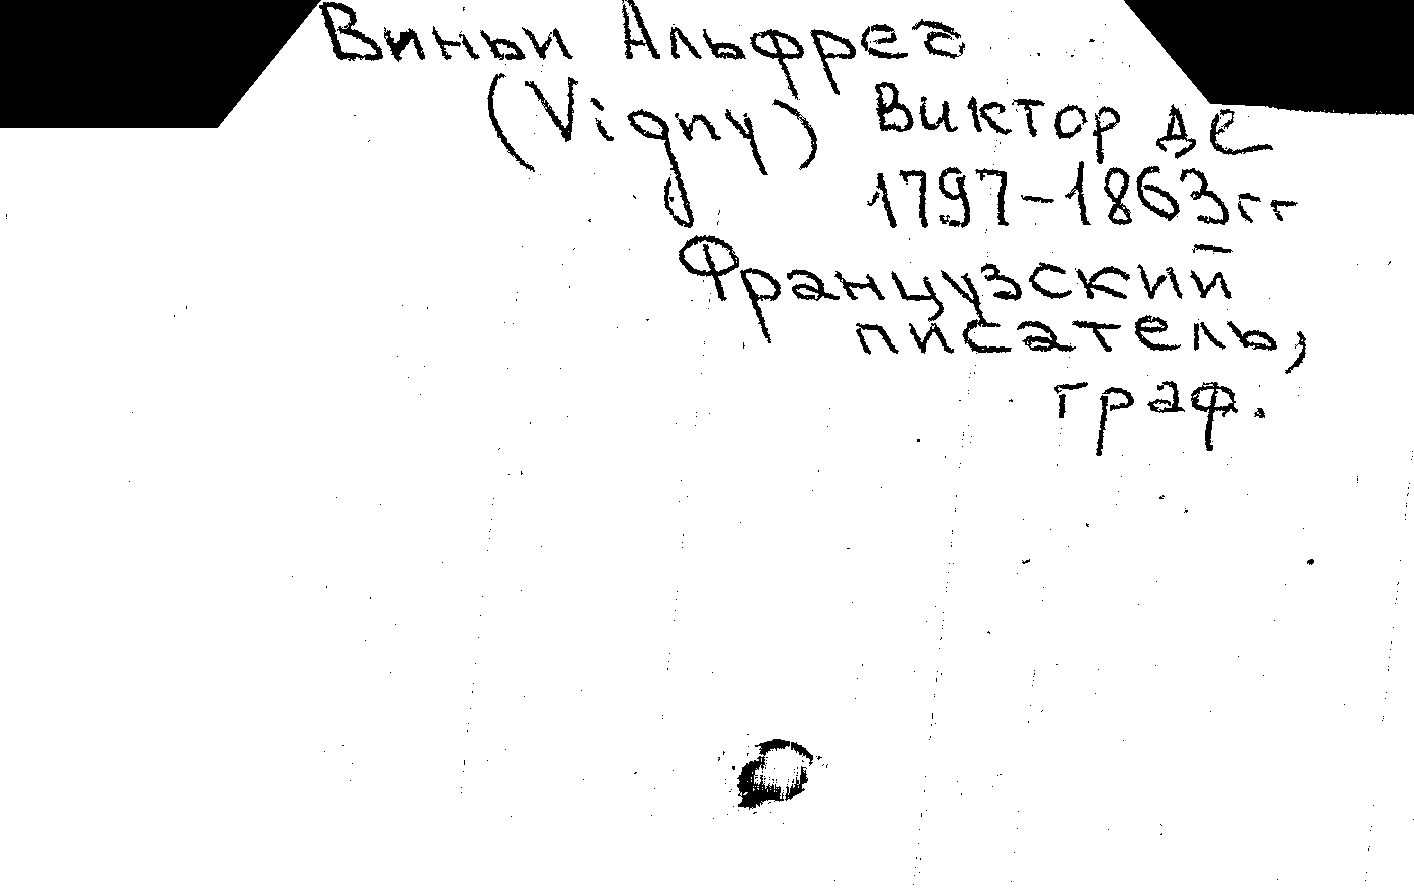 Виньи Альфред
(Vigny) Виктор де
1797-1863гг
Французский
писатель,
граф.